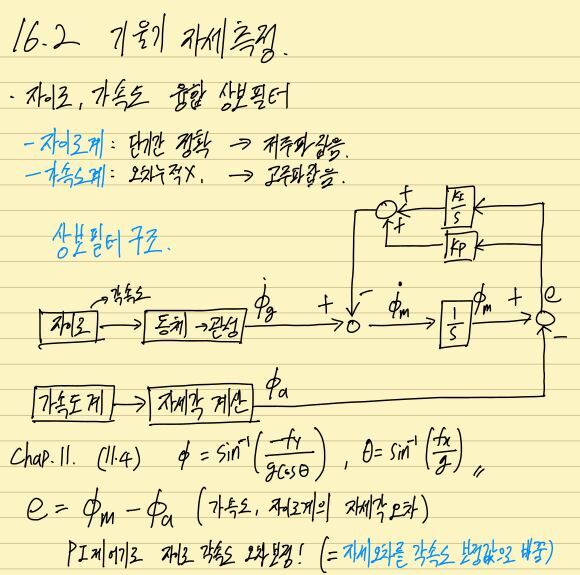 16.2 기울기 자세측정.
· 자이로, 가속도 융합 상보필터
- 자이로계 : 단기간 정확 → 저주파잡음.
- 가속도계 : 오차누적X, → 고주파잡음.
상보필터 구조.
+ + KI/S
KP
각속도
자이로 → 동체→관성 φ̇g + - φ̇m 1/S φm + e
-
가속도계 → 자세각 계산 φa
Chap.11. (11.4) φ = sin⁻¹(-fy/gcosθ), θ = sin⁻¹(fx/g) 〃
e = φm - φa (가속도, 자이로계의 자세각 오차)
PI제어기로 자이로 각속도 오차보정! (= 자세오차를 각속도 보정값으로 바꿈)